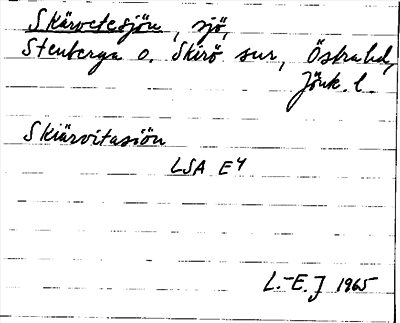 Skärvetesjön, sjö,
Stenberga o. Skirö snr, Östra hd,
Jönk. l.
Skiärvitasiön
LSA E4
L.-E. J 1965